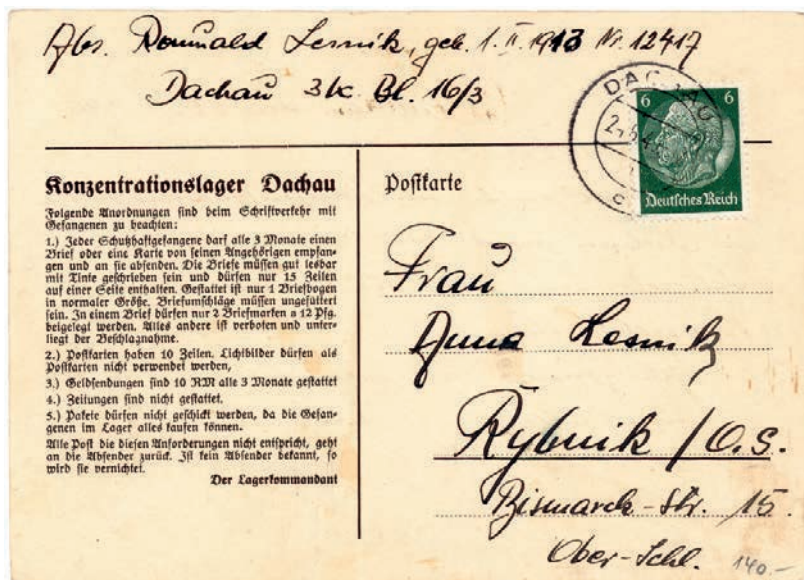 Abs. Romuald Lesnik, geb. 1. II. 1913 Nr. 12417
Dachau 3 K Bl. 16/3
DACHAU
6 6
Deutsches Reich
Konzentrationslager Dachau
Folgende Anordnungen sind beim Schriftverkehr mit
Gefangenen zu beachten:
1.) Jeder Schutzhaftgefangene darf alle 3 Monate einen
Brief oder eine Karte von seinen Angehörigen empfan-
gen und an sie absenden. Die Briefe müssen gut lesbar
mit Tinte geschrieben sein und dürfen nur 15 Zeilen
auf einer Seite enthalten. Gestattet ist nur 1 Briefbogen
in normaler Größe. Briefumschläge müssen ungefüttert
sein. In einem Brief dürfen nur 2 Briefmarken a 12 Pfg.
beigelegt werden. Alles andere ist verboten und unter-
liegt der Beschlagnahme.
2.) Postkarten haben 10 Zeilen. Lichtbilder dürfen als
Postkarten nicht verwendet werden,
3.) Geldsendungen sind 10 RM alle 3 Monate gestattet
4.) Zeitungen sind nicht gestattet.
5.) Pakete dürfen nicht geschickt werden, da die Gefan-
genen im Lager alles kaufen können.
Alle Post die diesen Anforderungen nicht entspricht, geht
an die Absender zurück. Ist kein Absender bekannt, so
wird sie vernichtet.
Der Lagerkommandant
Postkarte
Frau
Anna Lesnik
Rybnik / O.S.
Bismarck-Str. 15.
Ober-Schl.
140.-